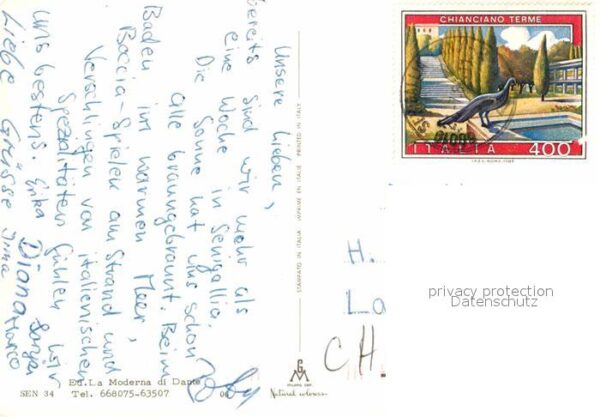 Unsere Lieben,
bereits sind wir mehr als
eine Woche in Senigallia.
Die Sonne hat uns schon
alle braungebrannt. Beim
Baden im warmen Meer,
Boccia-Spielen am Strand und
Verschlingen von italienischen
Spezialitäten fühlen wir
uns bestens. Erika
Diana Marco
Liebe Grüsse Irma
CHIANCIANO TERME
ITALIA 400
STAMPATO IN ITALIA IMPRIME EN ITALIE PRINTED IN ITALY
H.
La
CH
privacy protection
Datenschutz
Ed. La Moderna di Dante
SEN 34 Tel. 668075-63507
Natural colours